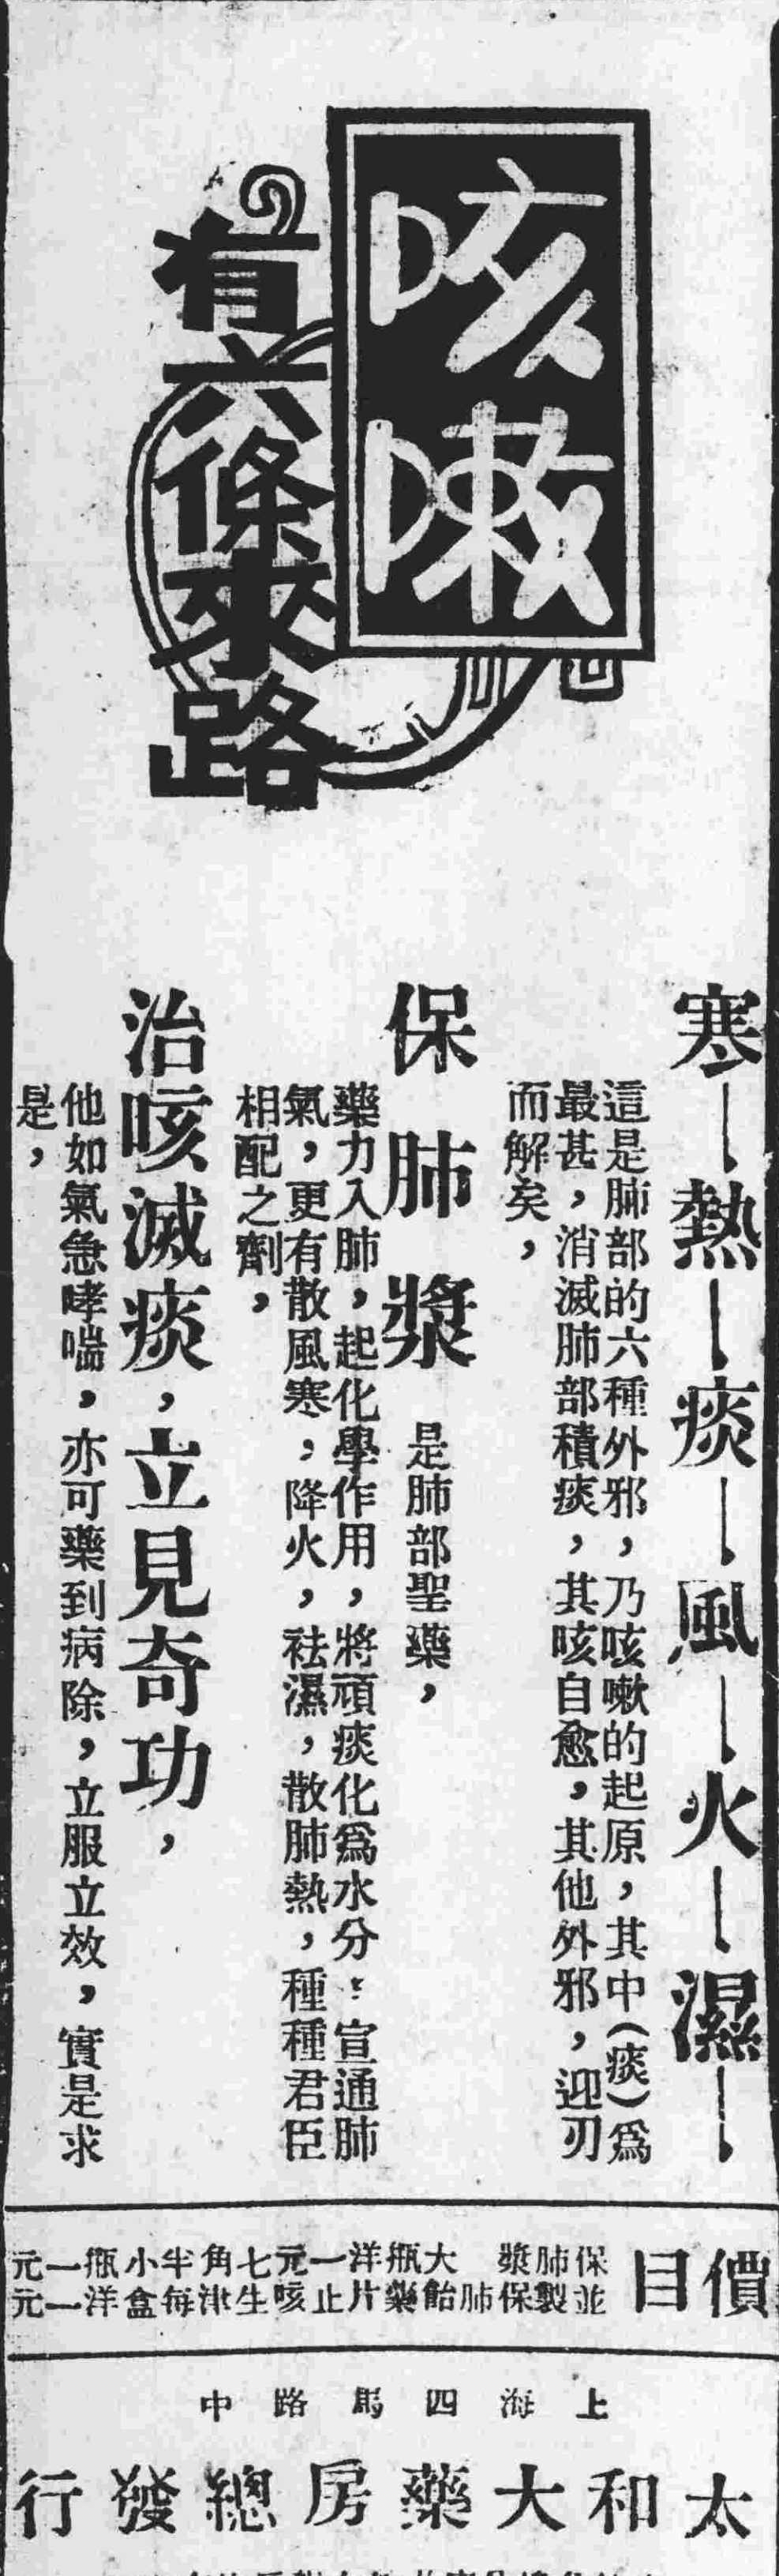 咳嗽
有六條來路
寒—熱—痰—風—火—濕—
這是肺部的六種外邪，乃咳嗽的起原，其中（痰）爲
最甚，消滅肺部積痰，其咳自愈，其他外邪，迎刃
而解矣，
保肺漿 是肺部聖藥，
藥力入肺，起化學作用，將頑痰化爲水分，宣通肺
氣，更有散風寒，降火，袪濕，散肺熱，種種君臣
相配之劑，
治咳滅痰，立見奇功，
他如氣急哮喘，亦可藥到病除，立服立效，實是求
是，
價目
保肺漿 大瓶洋一元七角半小瓶一元
並製保肺飴藥片止咳生津每盒洋一元
上海四馬路中
太和大藥房總發行